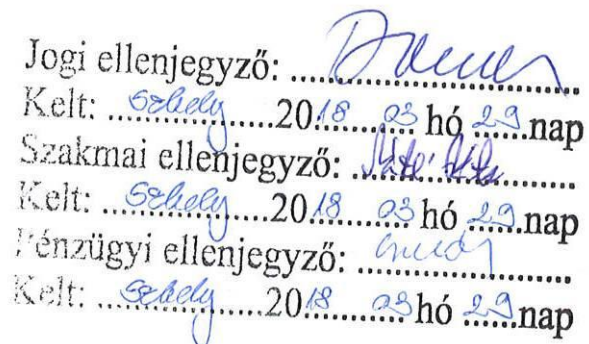 Jogi ellenjegyző: ....................
Kelt: Szhely 2018 03 hó 29 nap
Szakmai ellenjegyző: ....................
Kelt: Szhely 2018 03 hó 29 nap
Pénzügyi ellenjegyző: ....................
Kelt: Szhely 2018 03 hó 29 nap